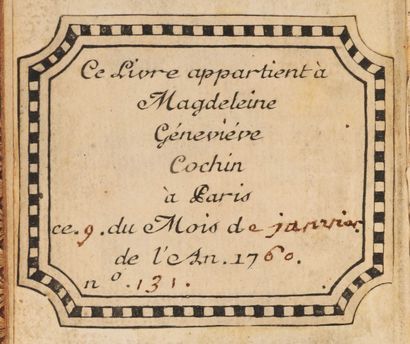 Ce Livre appartient à
Magdeleine
Géneviéve
Cochin
à Paris
ce. 9. du Mois de janvier
de l'An. 1760.
n⁰. 131.